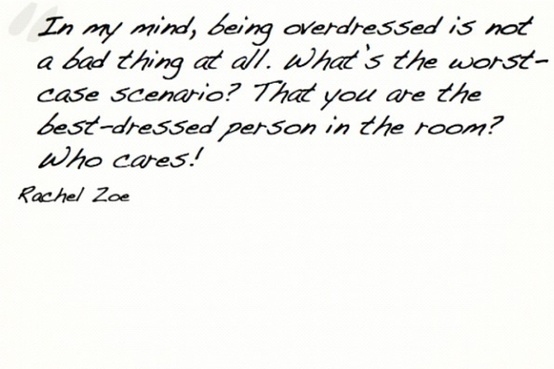 In my mind, being overdressed is not
a bad thing at all. What's the worst-
case scenario? That you are the
best-dressed person in the room?
Who cares!
Rachel Zoe